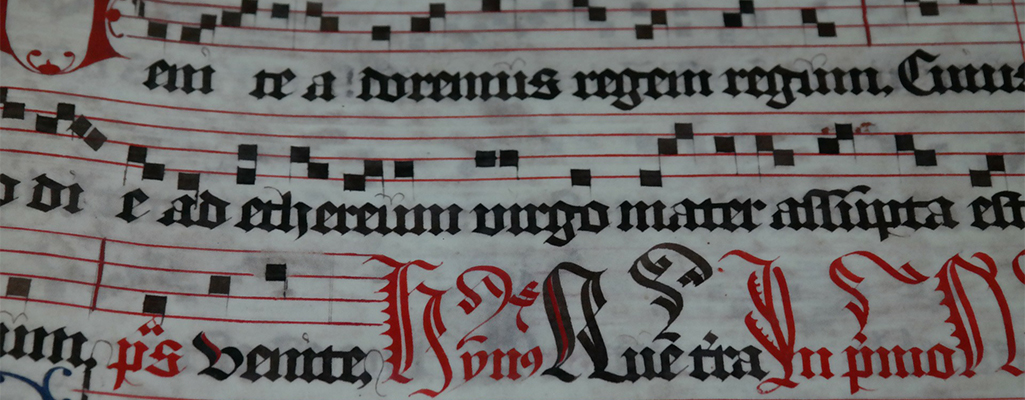 Veni te a doremus regem regum. Cuius
o di e ad ethereum uirgo mater assūpta est
lum. p̄s Venite, Hȳn9 Quē t̄ra In p̄mo N